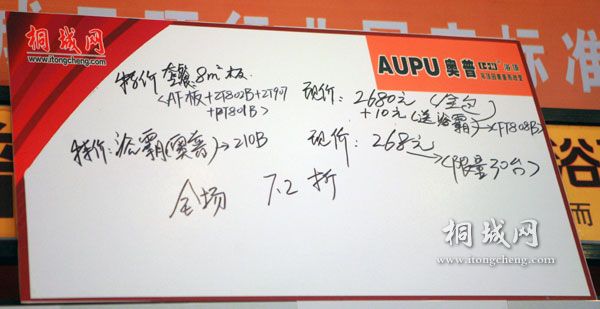 桐城网
www.itongcheng.com
AUPU 奥普 浴霸
特价 套餐 8m² 板
现价: 2680元 (全台)
<AF板+ZT802B+ZT99
+10元 (送浴霸)→<FT808B>
特价: 浴霸(奥普)→210B
现价: 268元
→(限量30台)
全场 7.2 折
浴
而
桐城网
www.itongcheng.com